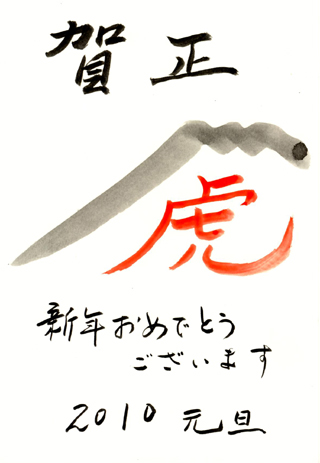 賀正
虎
新年おめでとう
ございます
2010 元旦